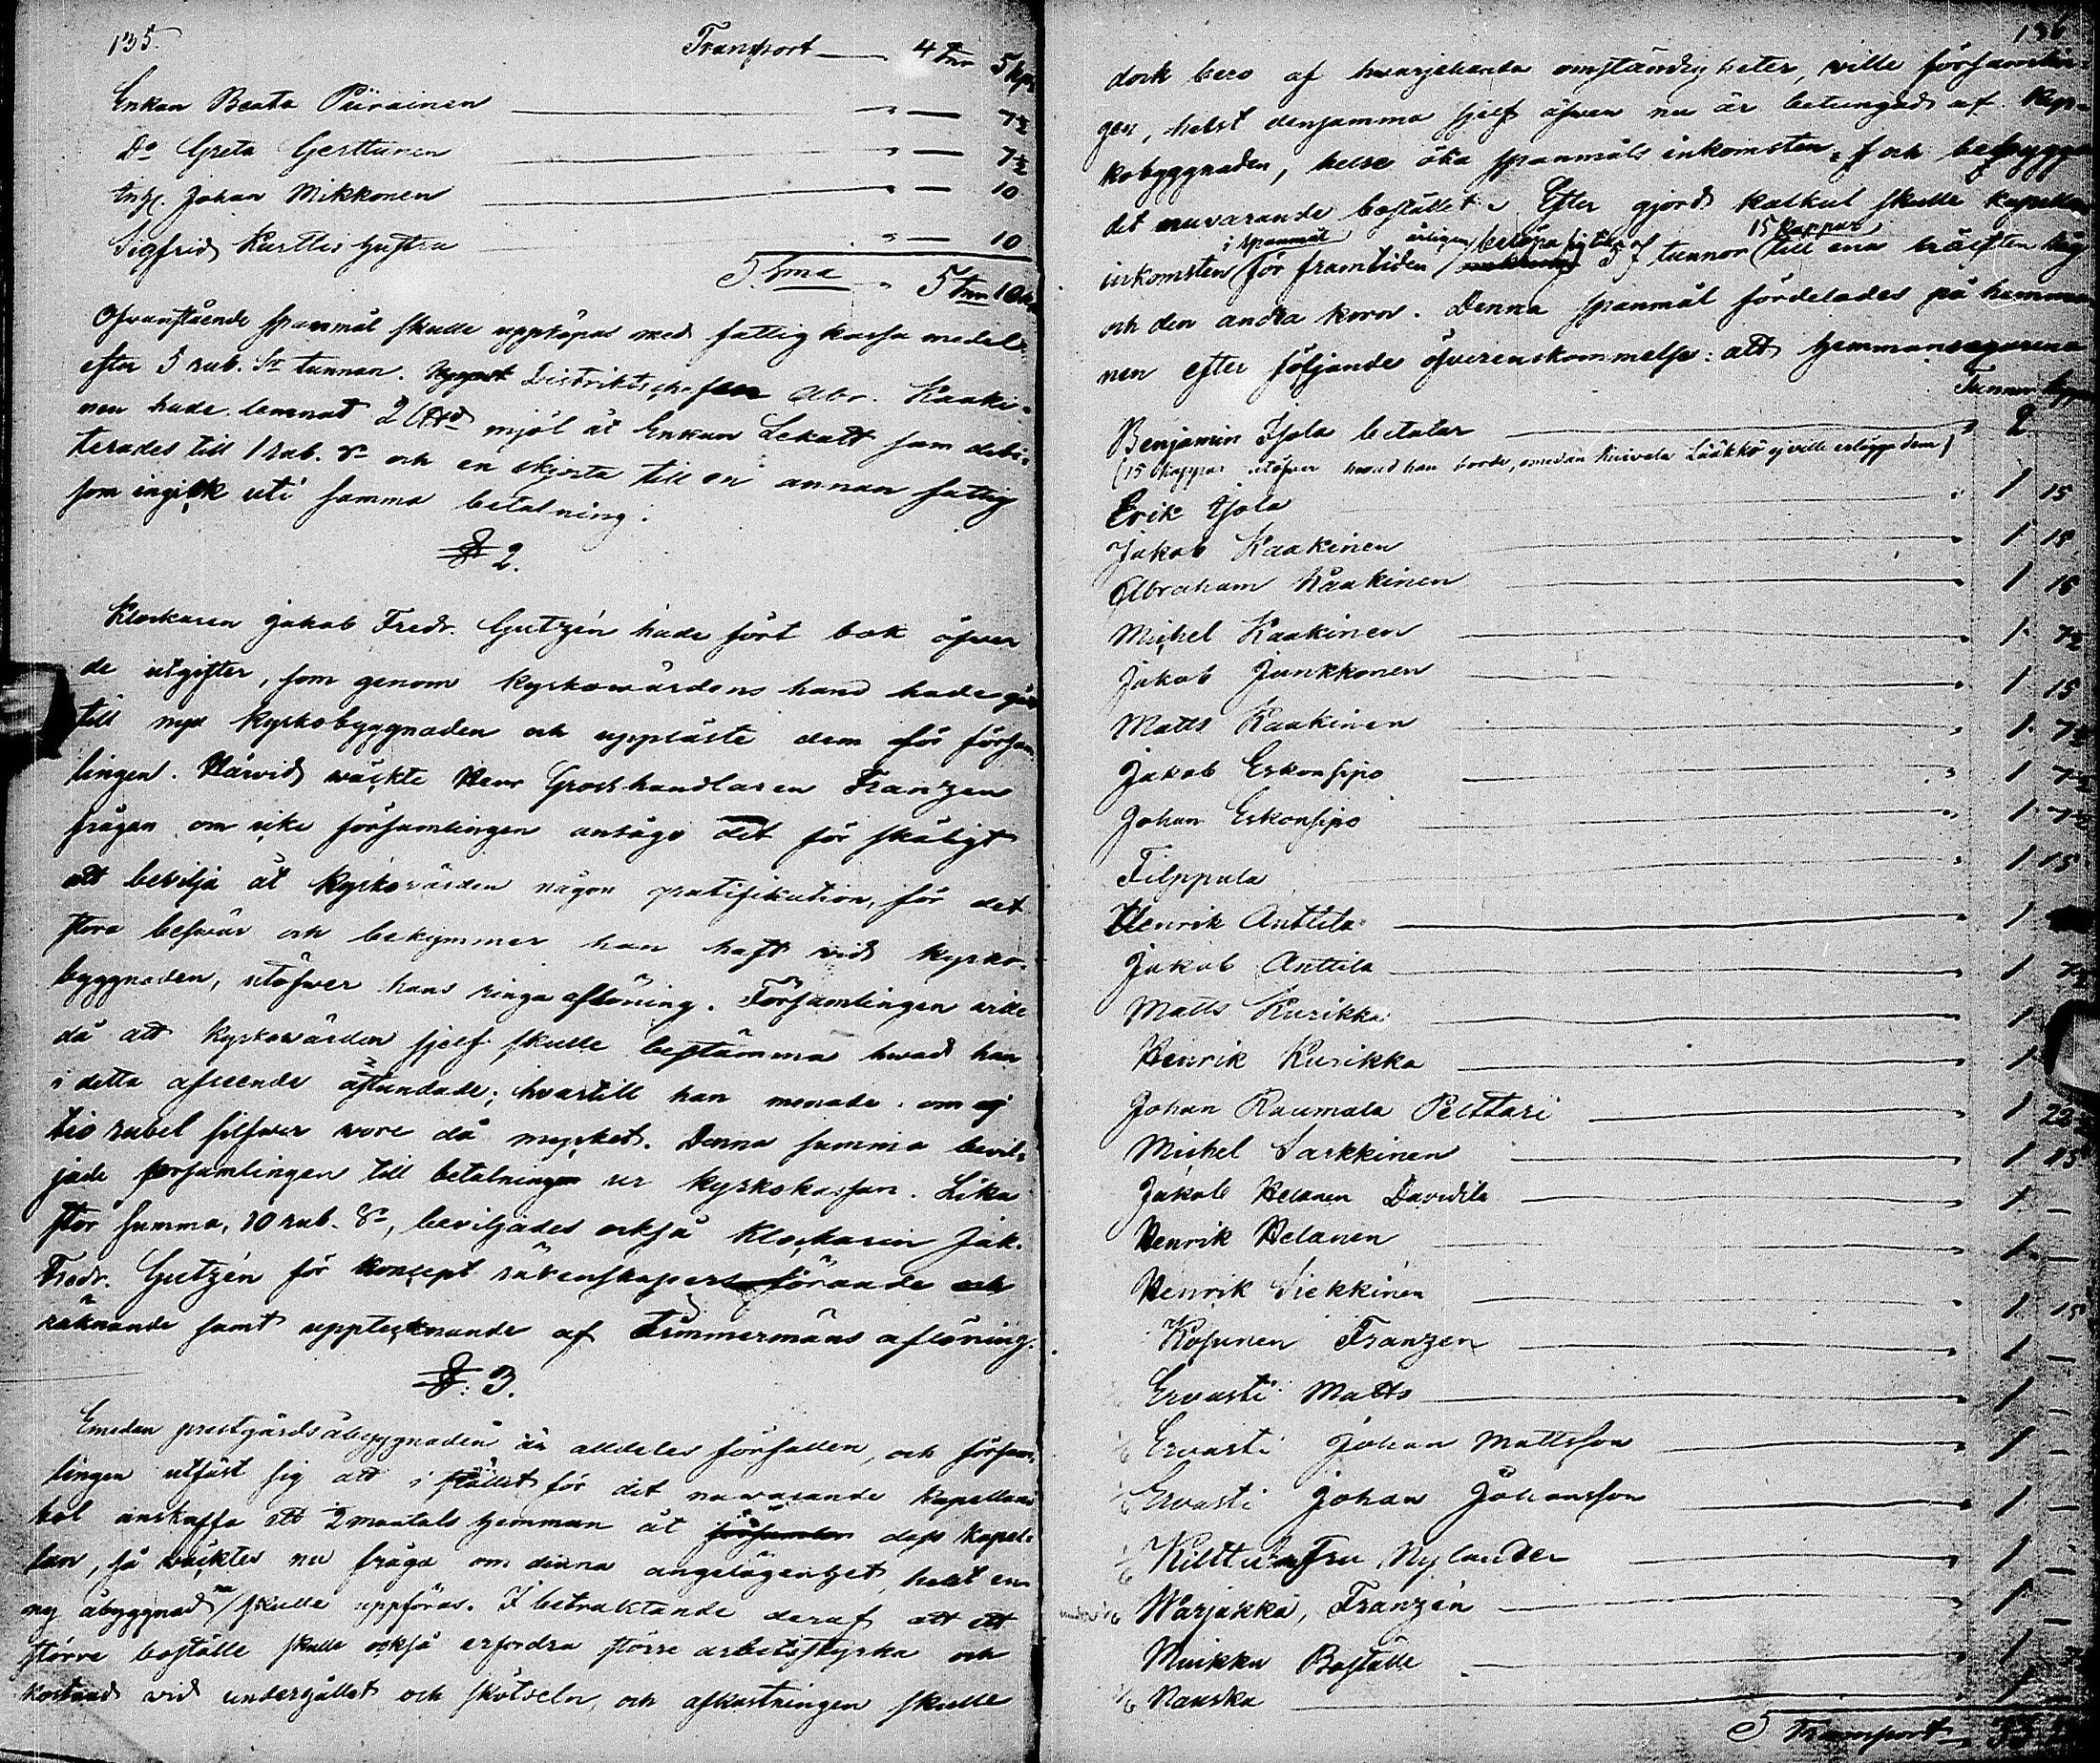 135.
Transport — 4 tnr 5 kpr
Enkan Beata Piirainen — " — 7½
Do Greta Gerttunen — " — 7½
Johan Mikkonen — " — 10
Sigfrid Kurttis hustru — " — 10
S:ma 5 tnr 10
Ofvanstående spanmål skulle uppköpas med fattigkassa medel
efter 5 rub. Sr tunnan. Distriktschefen Abr. Kaaki-
nen hade lemnat 2 mjöl åt Enkan Lekatt som debi-
terades till 1 rub. Sr och en skjorta till en annan fattig
som ingick uti samma betalning.
§ 2.
Klockaren Jakob Fredr. Gutzén hade fört bok öfver
de utgifter, som genom kyrkowärdens hand hade gått
till nya kyrkobyggnaden och uppläste dem för försam-
lingen. Härvid wäckte Herr Grosshandlaren Franzen
frågan om icke församlingen ansåge det för skäligt
att bevilja åt Kyrkovärden någon gratifikation, för det
stora besvär och bekymmer han haft vid kyrko-
byggnaden, utöfver hans ringa aflöning. Församlingen
då att kyrkowärden sjelf skulle bestämma hwad han
i detta afseende åstundade; hvartill han menade om ej
tio rubel silfwer wore då mycket. Denna summa bevil-
jade församlingen till betalningen ur kyrkokassan. Lika
stor summa, 10 rub. Sr, beviljades också Klockaren Jak.
Fredr. Gutzén för koncept räkenskapers förande och
räknande samt upptecknande af Timmermäns aflöning.
§. 3.
Emedan prestgårdsåbyggnaden är alldeles förfallen, och försam-
lingen utfäst sig att i stället för det nuvarande Kapellans
bol anskaffa ett 2 mantals hemman åt dess kapel-
lan, så wäcktes nu fråga om denna angelägenhet, helst en
ny åbyggnad skulle uppföras. I betraktande deraf att ett
större boställe skulle också erfordra större arbetsstyrka och
kostnad vid underhållet och skötseln, och afkastningen skulle
136
dock bero af hvarjehanda omständigheter, ville församlin-
gen, helst densamma sjelf äfven nu är betungad af Kyr-
kobyggnaden, helre öka spanmåls inkomsten, och bebygga
det nuvarande bostället. Efter gjord kalkul skulle kapellans
i spanmål årligen belöpa sig till 15 kappar
inkomsten för framtiden tunnor till ena hälften råg
och den andra korn. Denna spanmål fördelades på hemma-
nen efter följande öfverenskommelse: att hemmansegarena
Tunnor kappar
Benjamin Ijola betalar — 2
(15 kappar utöfver hwad han borde, emedan Kuivala Lääkkö ej ville erlägga dem)
Erik Ijola — 1 15
Jakob Kaakinen — 1 15
Abraham Kaakinen — 1 15
Michel Kaakinen — 1 7½
Jakob Junkkonen — 1 15
Matts Kaakinen — 1 7½
Jakob Eskonsipo — 1 7½
Johan Eskonsipo — 1 7½
Filppula — 1 15
Henrik Anttila — 1
Jakob Anttila — 1 7½
Matts Kurikka — 1
Henrik Kurikka — 1
Johan Raumala Pelttari — 1 22½
Michel Sarkkinen — 1 15
Jakob Helanen Davidila — 1 —
Henrik Helanen — 1 —
Henrik Siekkinen — 1 15
Kosunen Franzen — 1 —
Ervasti Matts — 1 —
Ervasti Johan Mattsson — 1 —
Ervasti Johan Johansson — 1 —
Kilttula Fru Nylander — 1 —
Warjakka, Franzén — 1 —
Muikku Boställe — 1
Nauska — 1
Transport